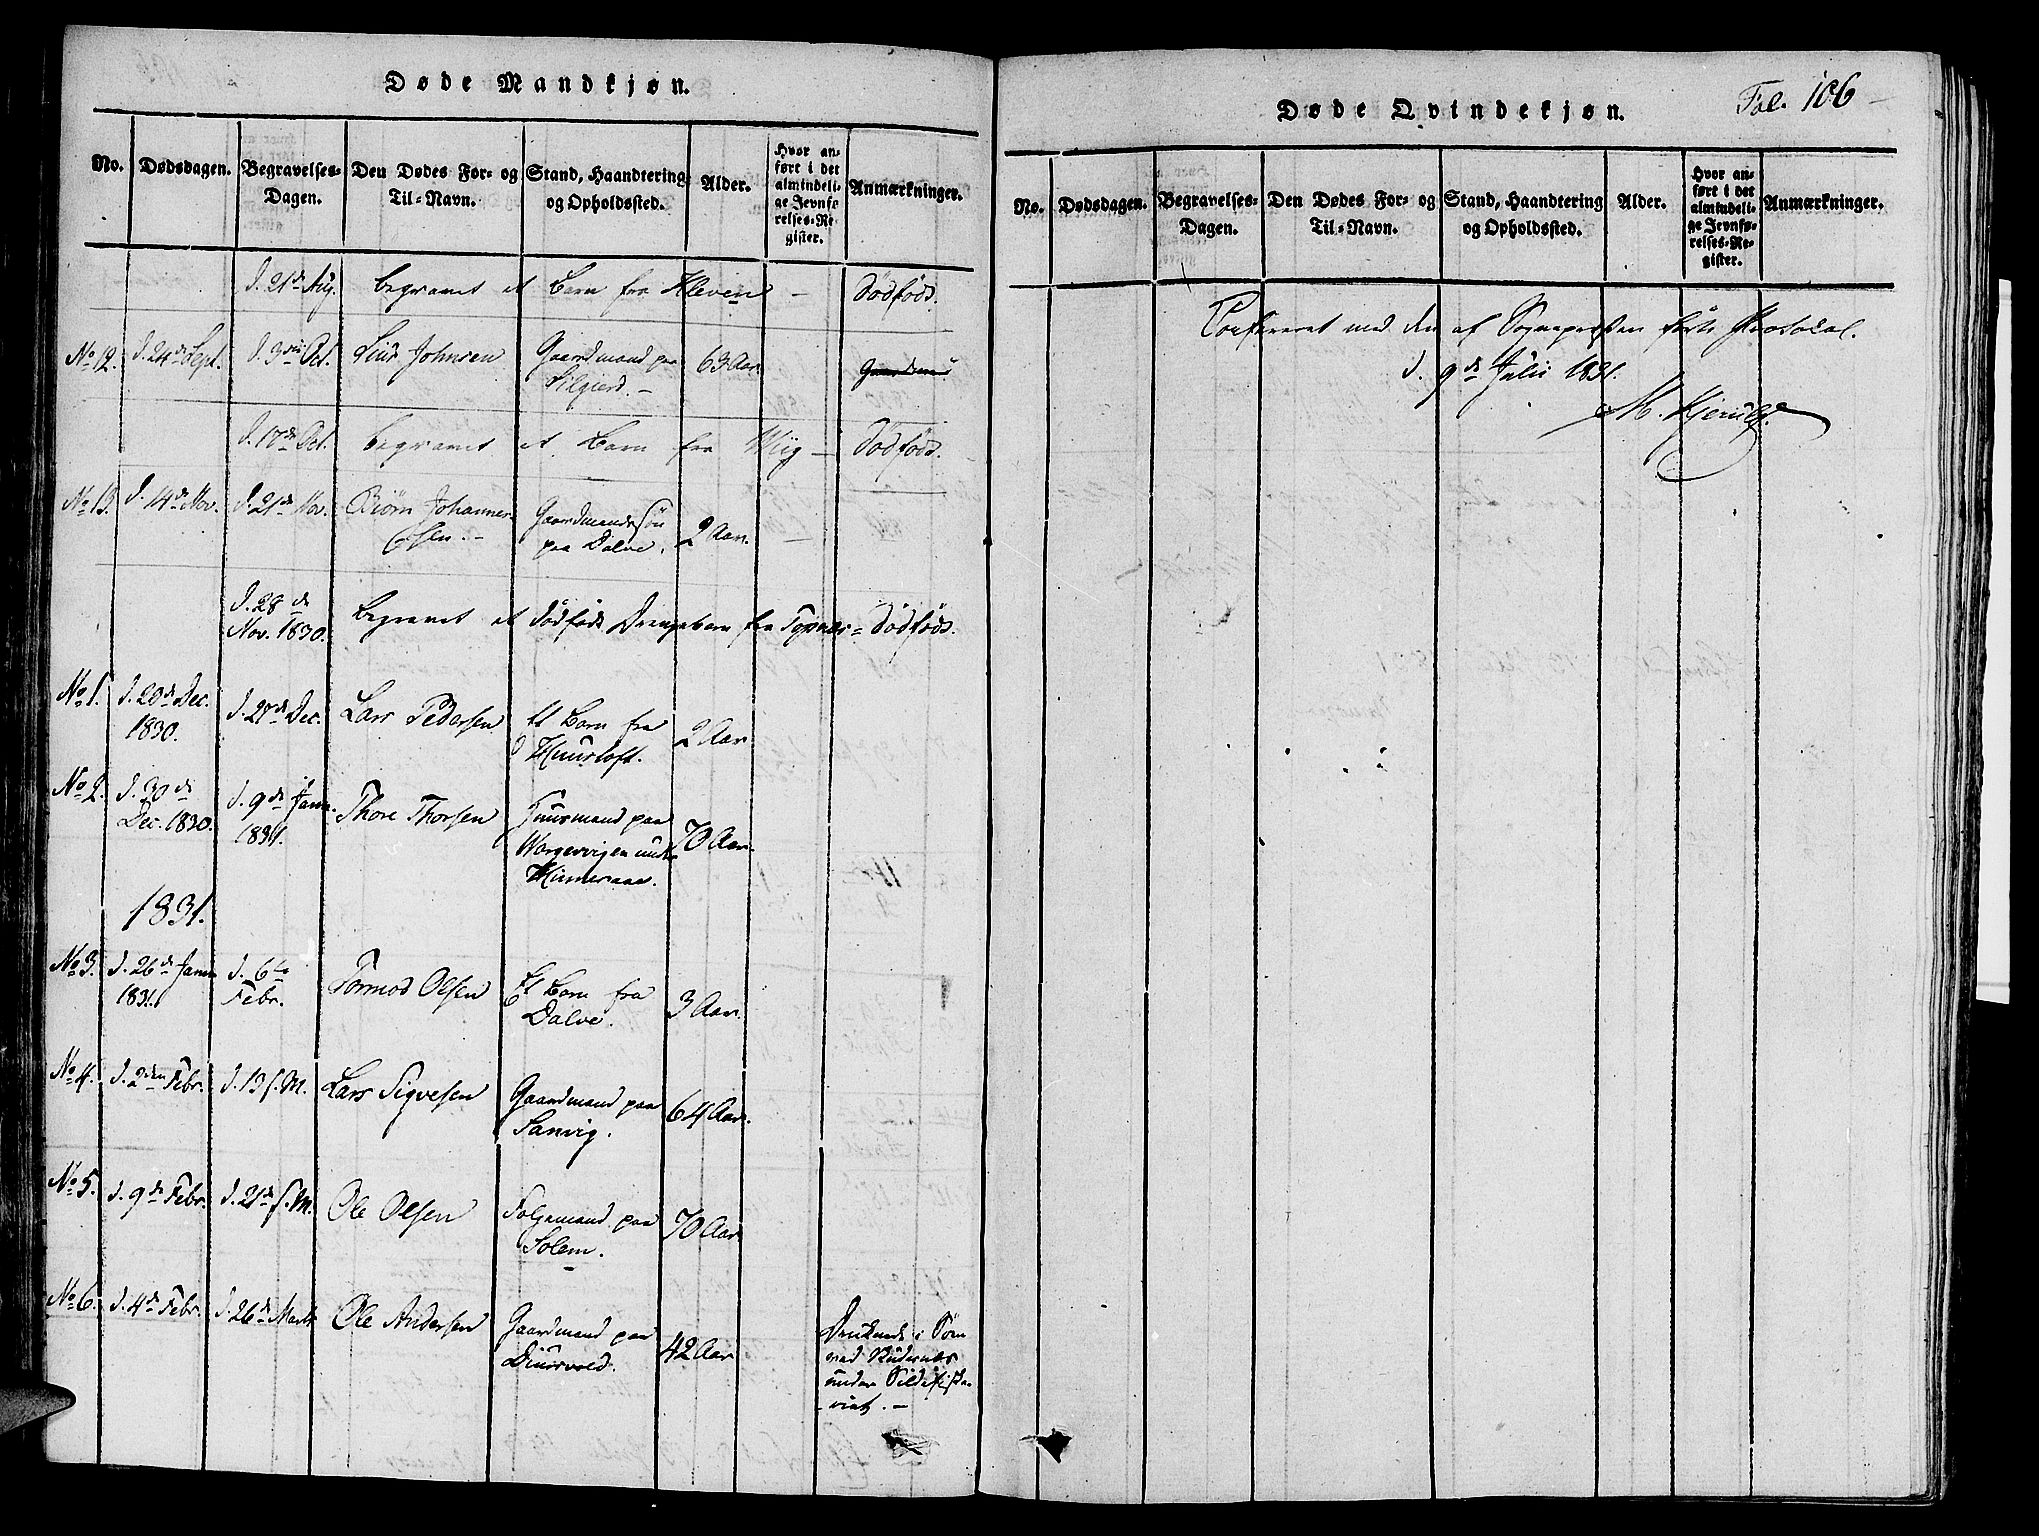 Døde Mandkjøn.
No. Dødsdagen. Begravelses-Dagen. Den Dødes For- og Til-Navn. Stand, Haandtering og Opholdssted. Alder. Hvor anført i det almindelige Jevnførelses-Register. Anmærkninger.
d. 21de Aug. begravet et Barn fra Kleven – dødfødt.
No 12. d. 24de Sept. d. 3die Oct. Johnsen Gaardmand paa
63 Aar.
d. 17de Oct. begravet et Barn fra Wiig – dødfødt.
No 13. d. 14de Nov. d. 21de Nov. Biørn Johannes-
sen. – Gaardmandssøn
paa Dalve. 2 Aar.
d. 28de
Nov. 1830. begravet et dødfødt Drengebarn fra Topnæs = dødfødt.
No 1. d. 20de Dec.
1830. d. 27de Dec. Lars Pedersen Et Barn fra
2 Aar
No 2. d. 30de
Dec. 1830. d. 9de Janu.
1831. Thore Thorsen Huusmand paa
Wargevigen under
70 Aar.
1831.
No 3. d. 26de Janu.
1831. d. 6te
Febr. Tormod Olsen Et Barn fra
Dalve. 3 Aar.
No 4. d. 2den Febr. d. 13 s. M. Lars Sigvesen Gaardmand paa
Sanvig. 64 Aar.
No 5. d. 9de Febr. d. 21de s. M. Ole Olsen Folgemand paa
Solem. 70 Aar
No 6. d. 4de Febr. d. 26de Marts Ole Andersen Gaardmand paa
Diursvold. 42 Aar Druknede i Søen
ved
under Sildefiske-
riet. –
Døde Qvindekjøn.
Fol. 106
No. Dødsdagen. Begravelses-Dagen. Den Dødes For- og Til-Navn. Stand, Haandtering og Opholdssted. Alder. Hvor anført i det almindelige Jevnførelses-Register. Anmærkninger.
Confereret med den af Sognepræsten førte Protocol.
d. 9de Julii 1831.
M. Kjerulf.